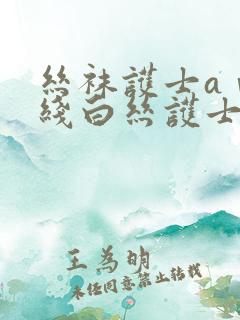 絲袜護士a
綫白絲護士
王為明
未经同意禁止转载